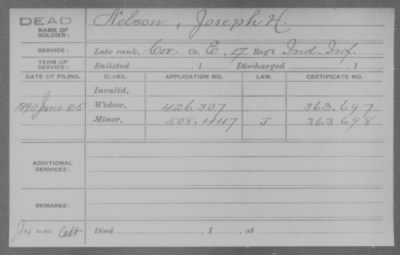 DEAD
NAME OF SOLDIER: Nelson, Joseph H.
SERVICE: Late rank, Cor. Co. E, 17 Reg't Ind. Inf.
TERM OF SERVICE: Enlisted , 1 Discharged , 1
DATE OF FILING. CLASS. APPLICATION NO. LAW. CERTIFICATE NO.
Invalid,
1890 June 25 Widow, 426.307 363.697
Minor, 508.447 J 363.698
ADDITIONAL SERVICES:
REMARKS:
Died , 1 , at